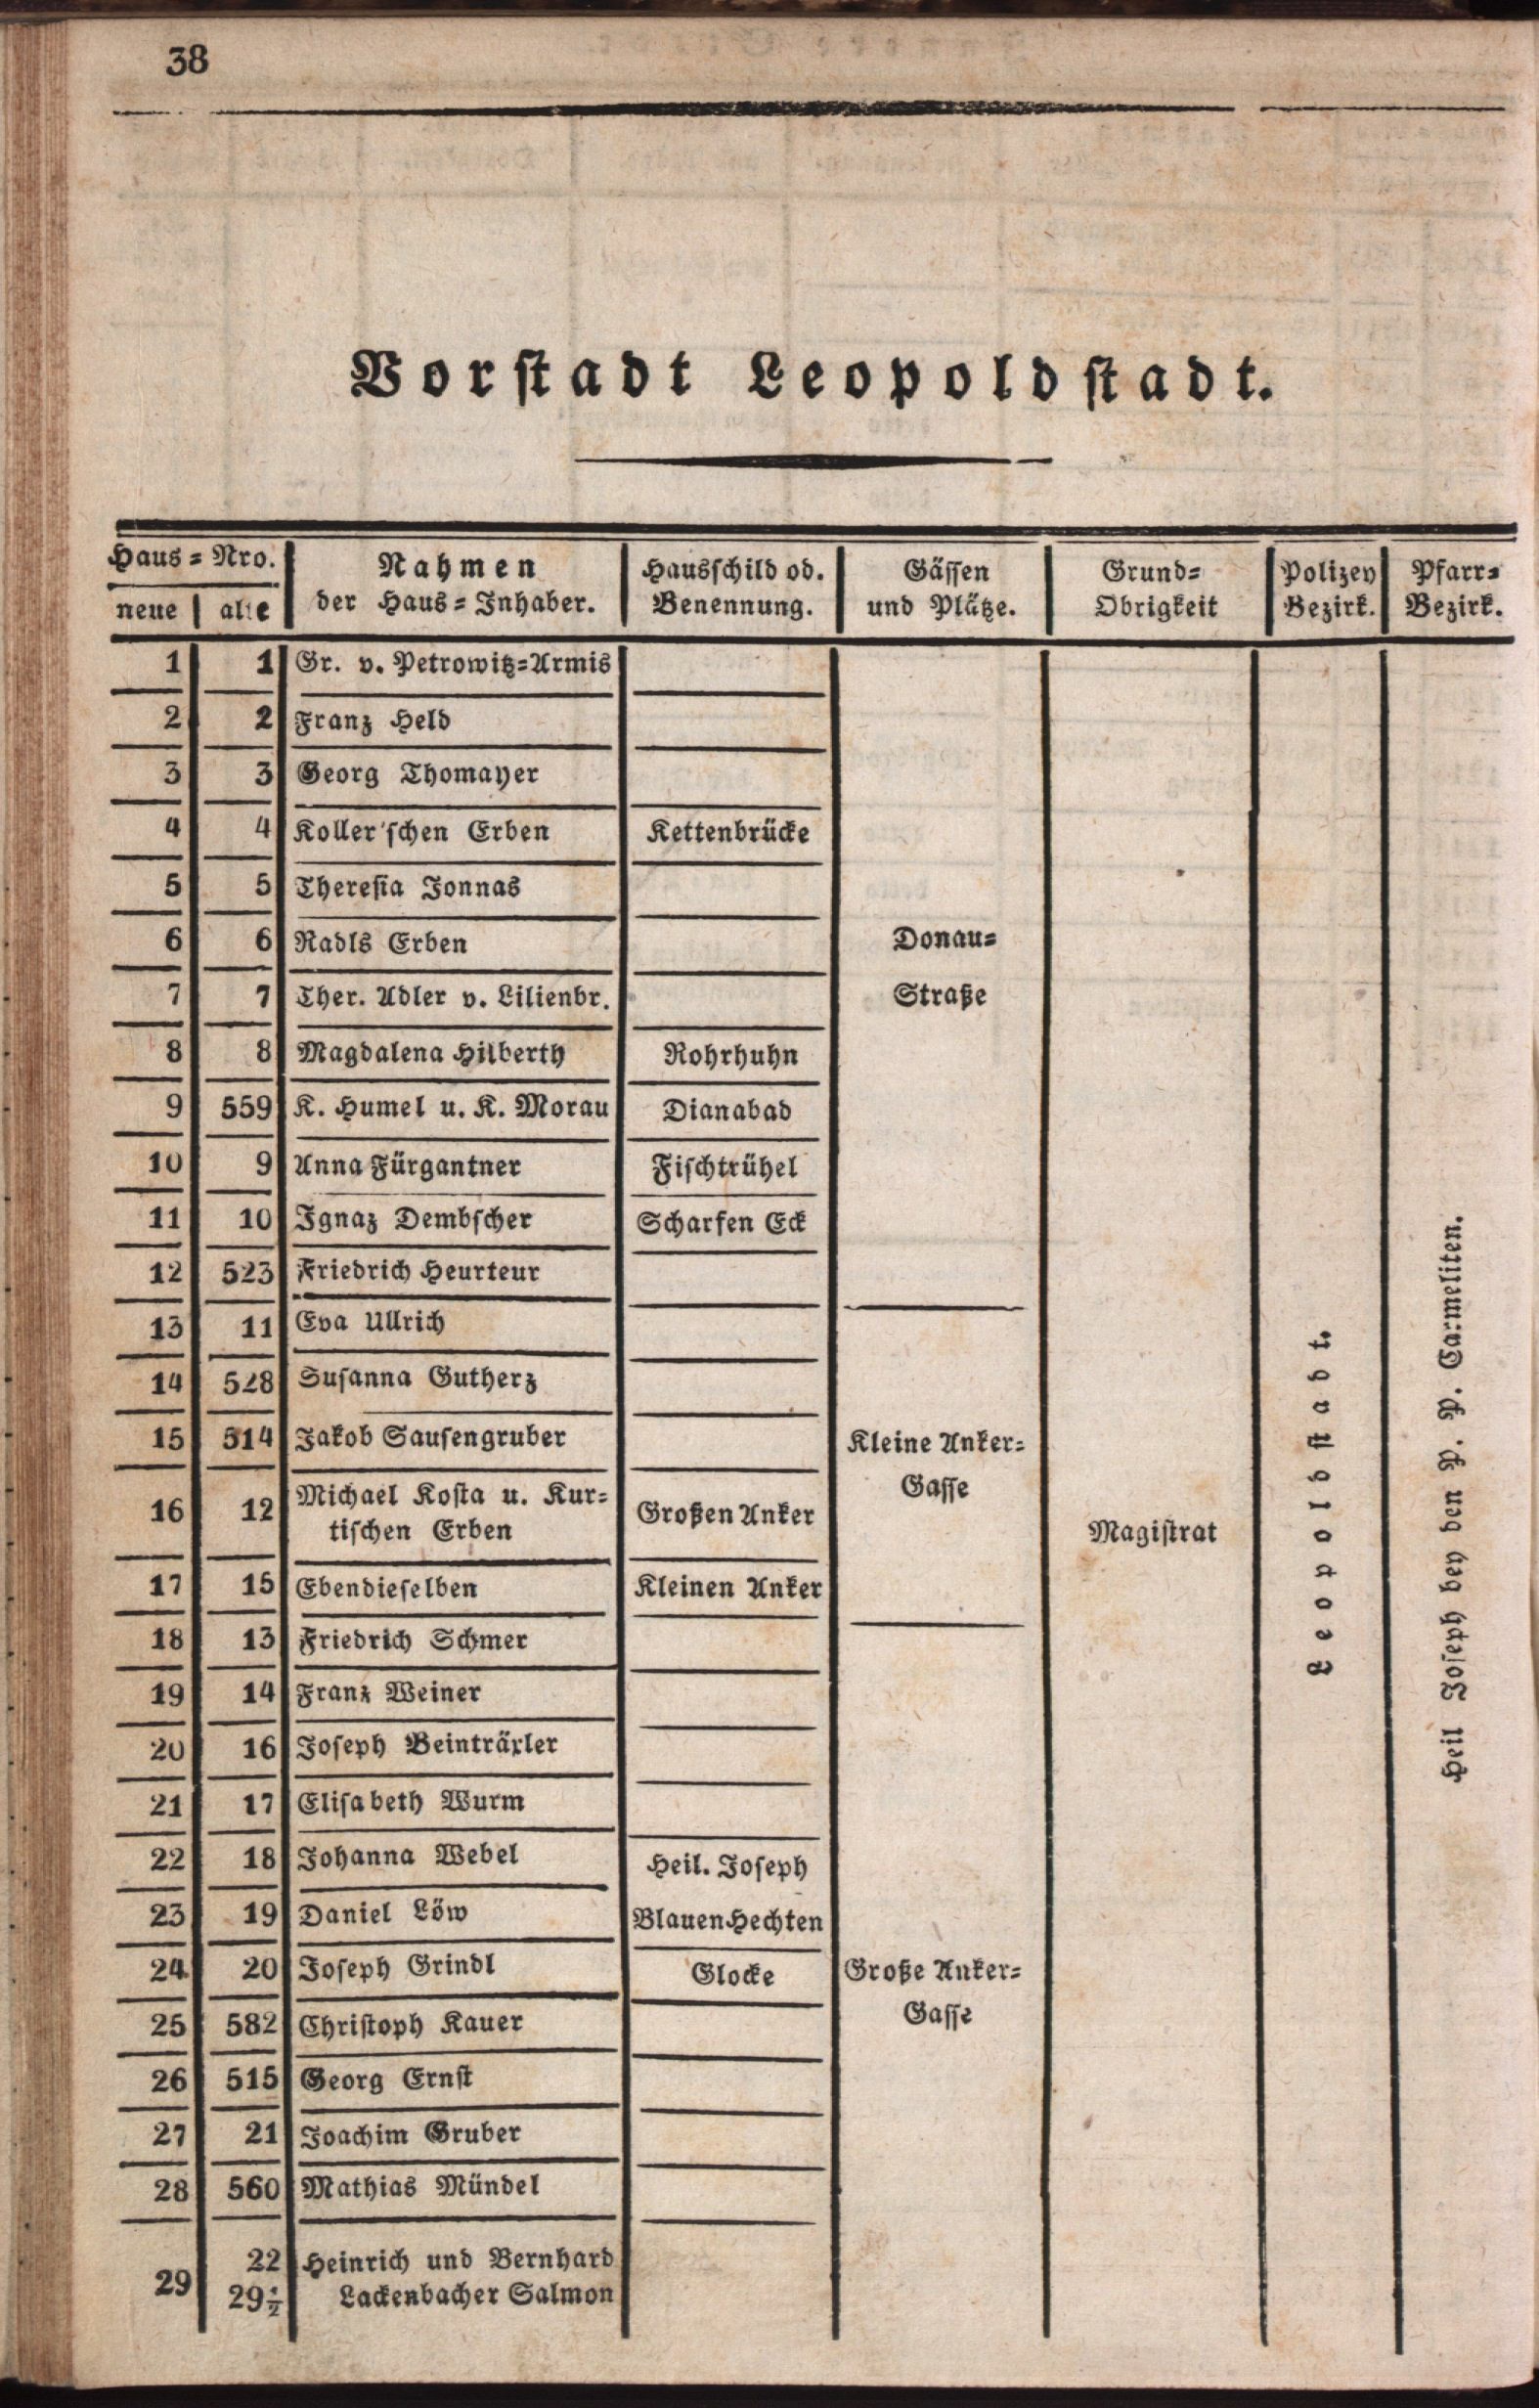 38
Vorstadt Leopoldstadt.
Haus=Nro. Nahmen Hausschild od. Gässen Grund= Polizey Pfarr=
neue alte der Haus=Inhaber. Benennung. und Plätze. Obrigkeit Bezirk. Bezirk.
1 1 Gr. v. Petrowitz=Armis
2 2 Franz Held
3 3 Georg Thomayer
4 4 Koller'schen Erben Kettenbrücke
5 5 Theresia Jonnas
6 6 Radls Erben Donau=
7 7 Ther. Adler v. Lilienbr. Straße
8 8 Magdalena Hilberth Rohrhuhn
9 559 K. Humel u. K. Morau Dianabad
10 9 Anna Fürgantner Fischtrühel
11 10 Ignaz Dembscher Scharfen Eck
12 523 Friedrich Heurteur
13 11 Eva Ullrich
14 528 Susanna Gutherz
15 514 Jakob Sausengruber Kleine Anker=
Gasse
16 12 Michael Kosta u. Kur=
tischen Erben Großen Anker Magistrat
17 15 Ebendieselben Kleinen Anker
18 13 Friedrich Schmer
19 14 Franz Weiner
20 16 Joseph Beinträxler
21 17 Elisabeth Wurm
22 18 Johanna Webel Heil. Joseph
23 19 Daniel Löw Blauen Hechten
24 20 Joseph Grindl Glocke Große Anker=
25 582 Christoph Kauer Gasse
26 515 Georg Ernst
27 21 Joachim Gruber
28 560 Mathias Mündel
29 22 Heinrich und Bernhard
29½ Lackenbacher Salmon
Leopoldstadt.
Heil Joseph bey den P. P. Carmeliten.